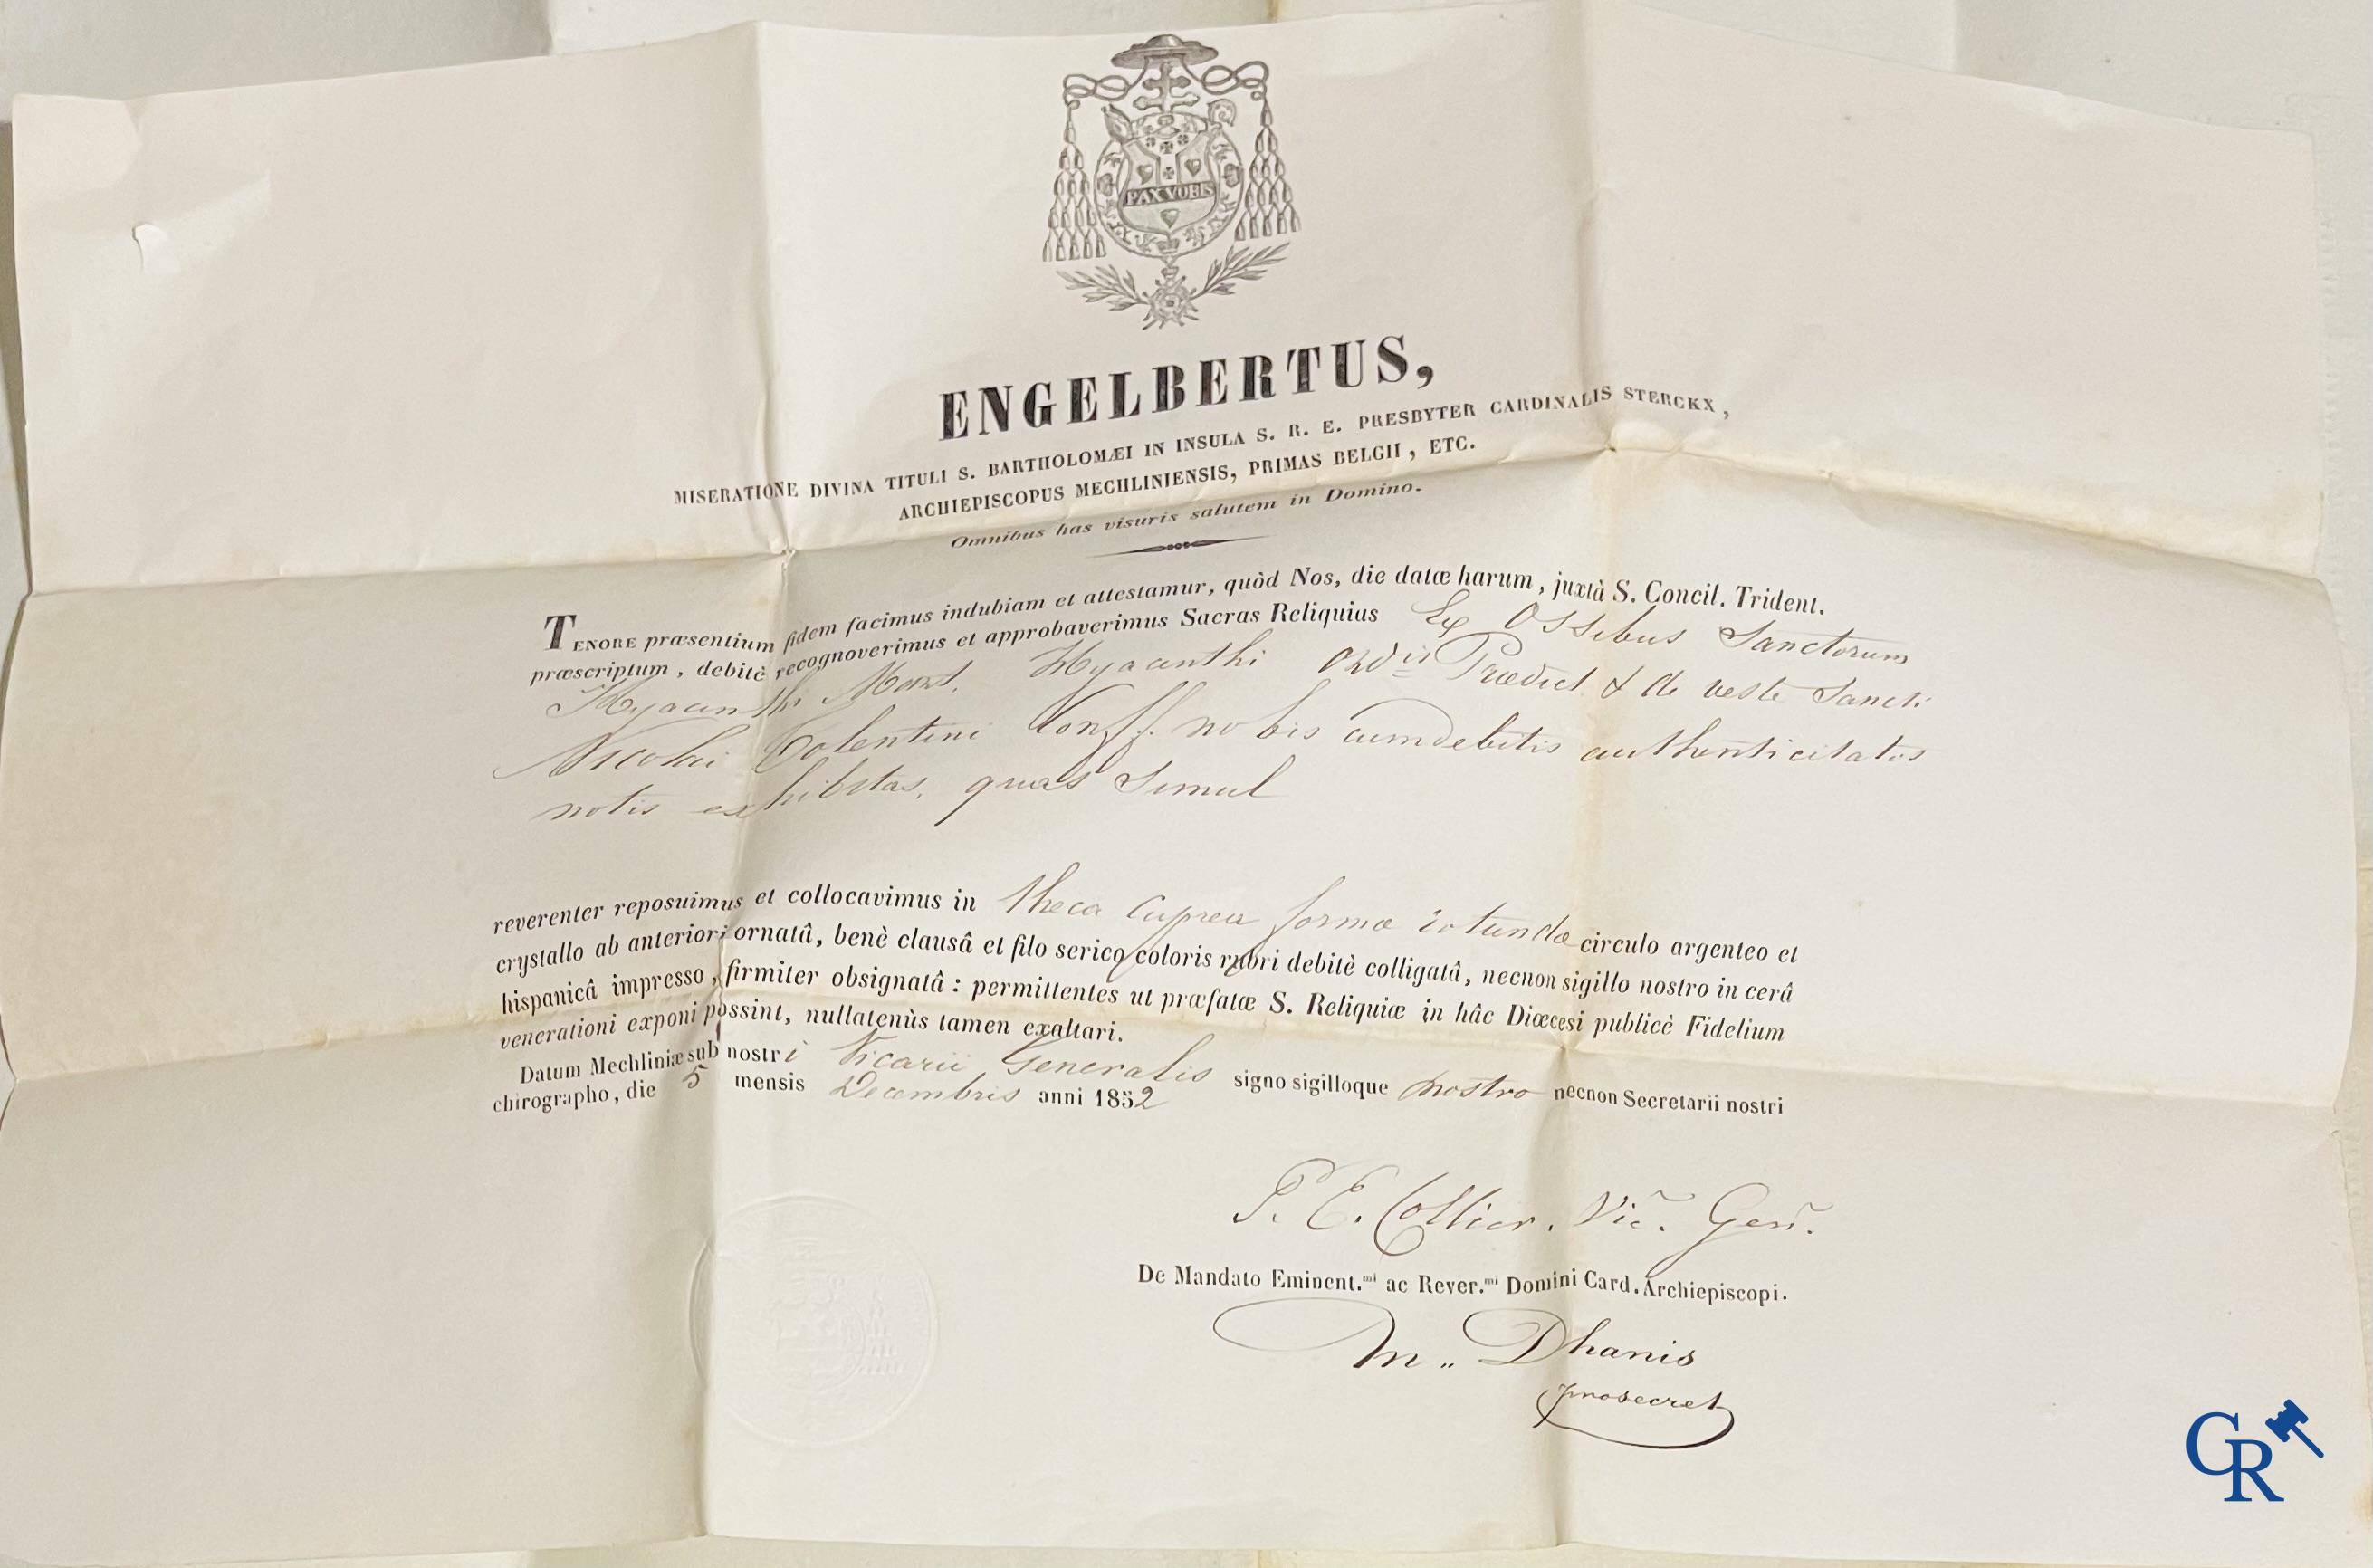 PAX VOBIS
ENGELBERTUS,
MISERATIONE DIVINA TITULI S. BARTHOLOMÆI IN INSULA S. R. E. PRESBYTER CARDINALIS STERCKX,
ARCHIEPISCOPUS MECHLINIENSIS, PRIMAS BELGII, ETC.
Omnibus has visuris salutem in Domino.
TENORE præsentium fidem facimus indubiam et attestamur, quòd Nos, die datæ harum, juxtà S. Concil. Trident.
præscriptum, debitè recognoverimus et approbaverimus Sacras Reliquias Ex Ossibus Sanctorum
Hyacinthi Mart. Hyacinthi Ordis Prædict & de veste Sancti
Nicolai Tolentini Conff. nobis cum debitis authenticitatis
notis exhibitas, quas Simul
reverenter reposuimus et collocavimus in theca cuprea formæ rotundæ circulo argenteo et
crystallo ab anteriori ornatâ, benè clausâ et filo serico coloris rubri debitè colligatâ, necnon sigillo nostro in cerâ
hispanicâ impresso, firmiter obsignatâ : permittentes ut præfatæ S. Reliquiæ in hâc Diœcesi publicè Fidelium
venerationi exponi possint, nullatenùs tamen exaltari.
Datum Mechliniæ sub nostri Vicarii Generalis signo sigilloque nostro necnon Secretarii nostri
chirographo, die 5 mensis Decembris anni 1852
P. E. Collier. Vic. Gen.
De Mandato Eminent.mi ac Rever.mi Domini Card. Archiepiscopi.
M. Dhanis
prosecret
CR